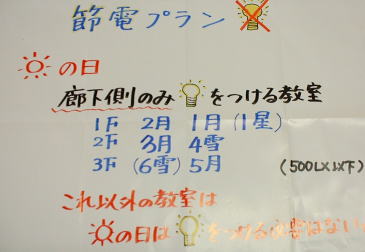 節電プラン
の日
廊下側のみ をつける教室
1F 2月 1月 (1星)
2F 3月 4雪
3F (6雪) 5月
(500LX以下)
これ以外の教室は
の日は をつける必要はない